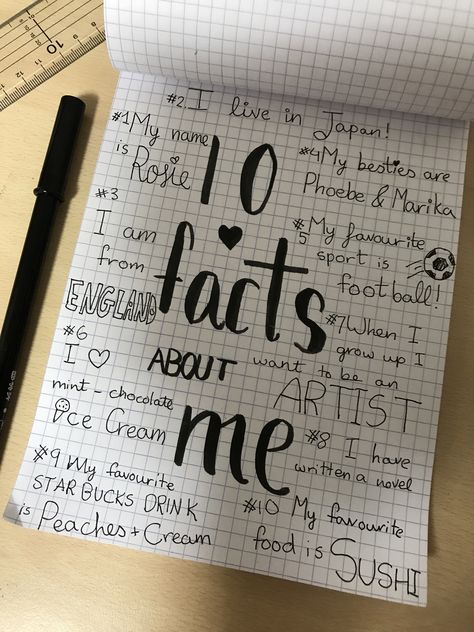 #1 My name
is
Rosie
#2. I live in Japan!
10
facts
ABOUT
me
#3
I am
from
ENGLAND
#4 My besties are
Phoebe & Marika
#5 My favourite
sport is
football!
#6
I ♡
mint-chocolate
ice Cream
#7 When I
grow up I
want to be an
ARTIST
#8 I have
written a novel
#9 My favourite
STARBUCKS DRINK
is Peaches + Cream
#10 My favourite
food is SUSHI
10